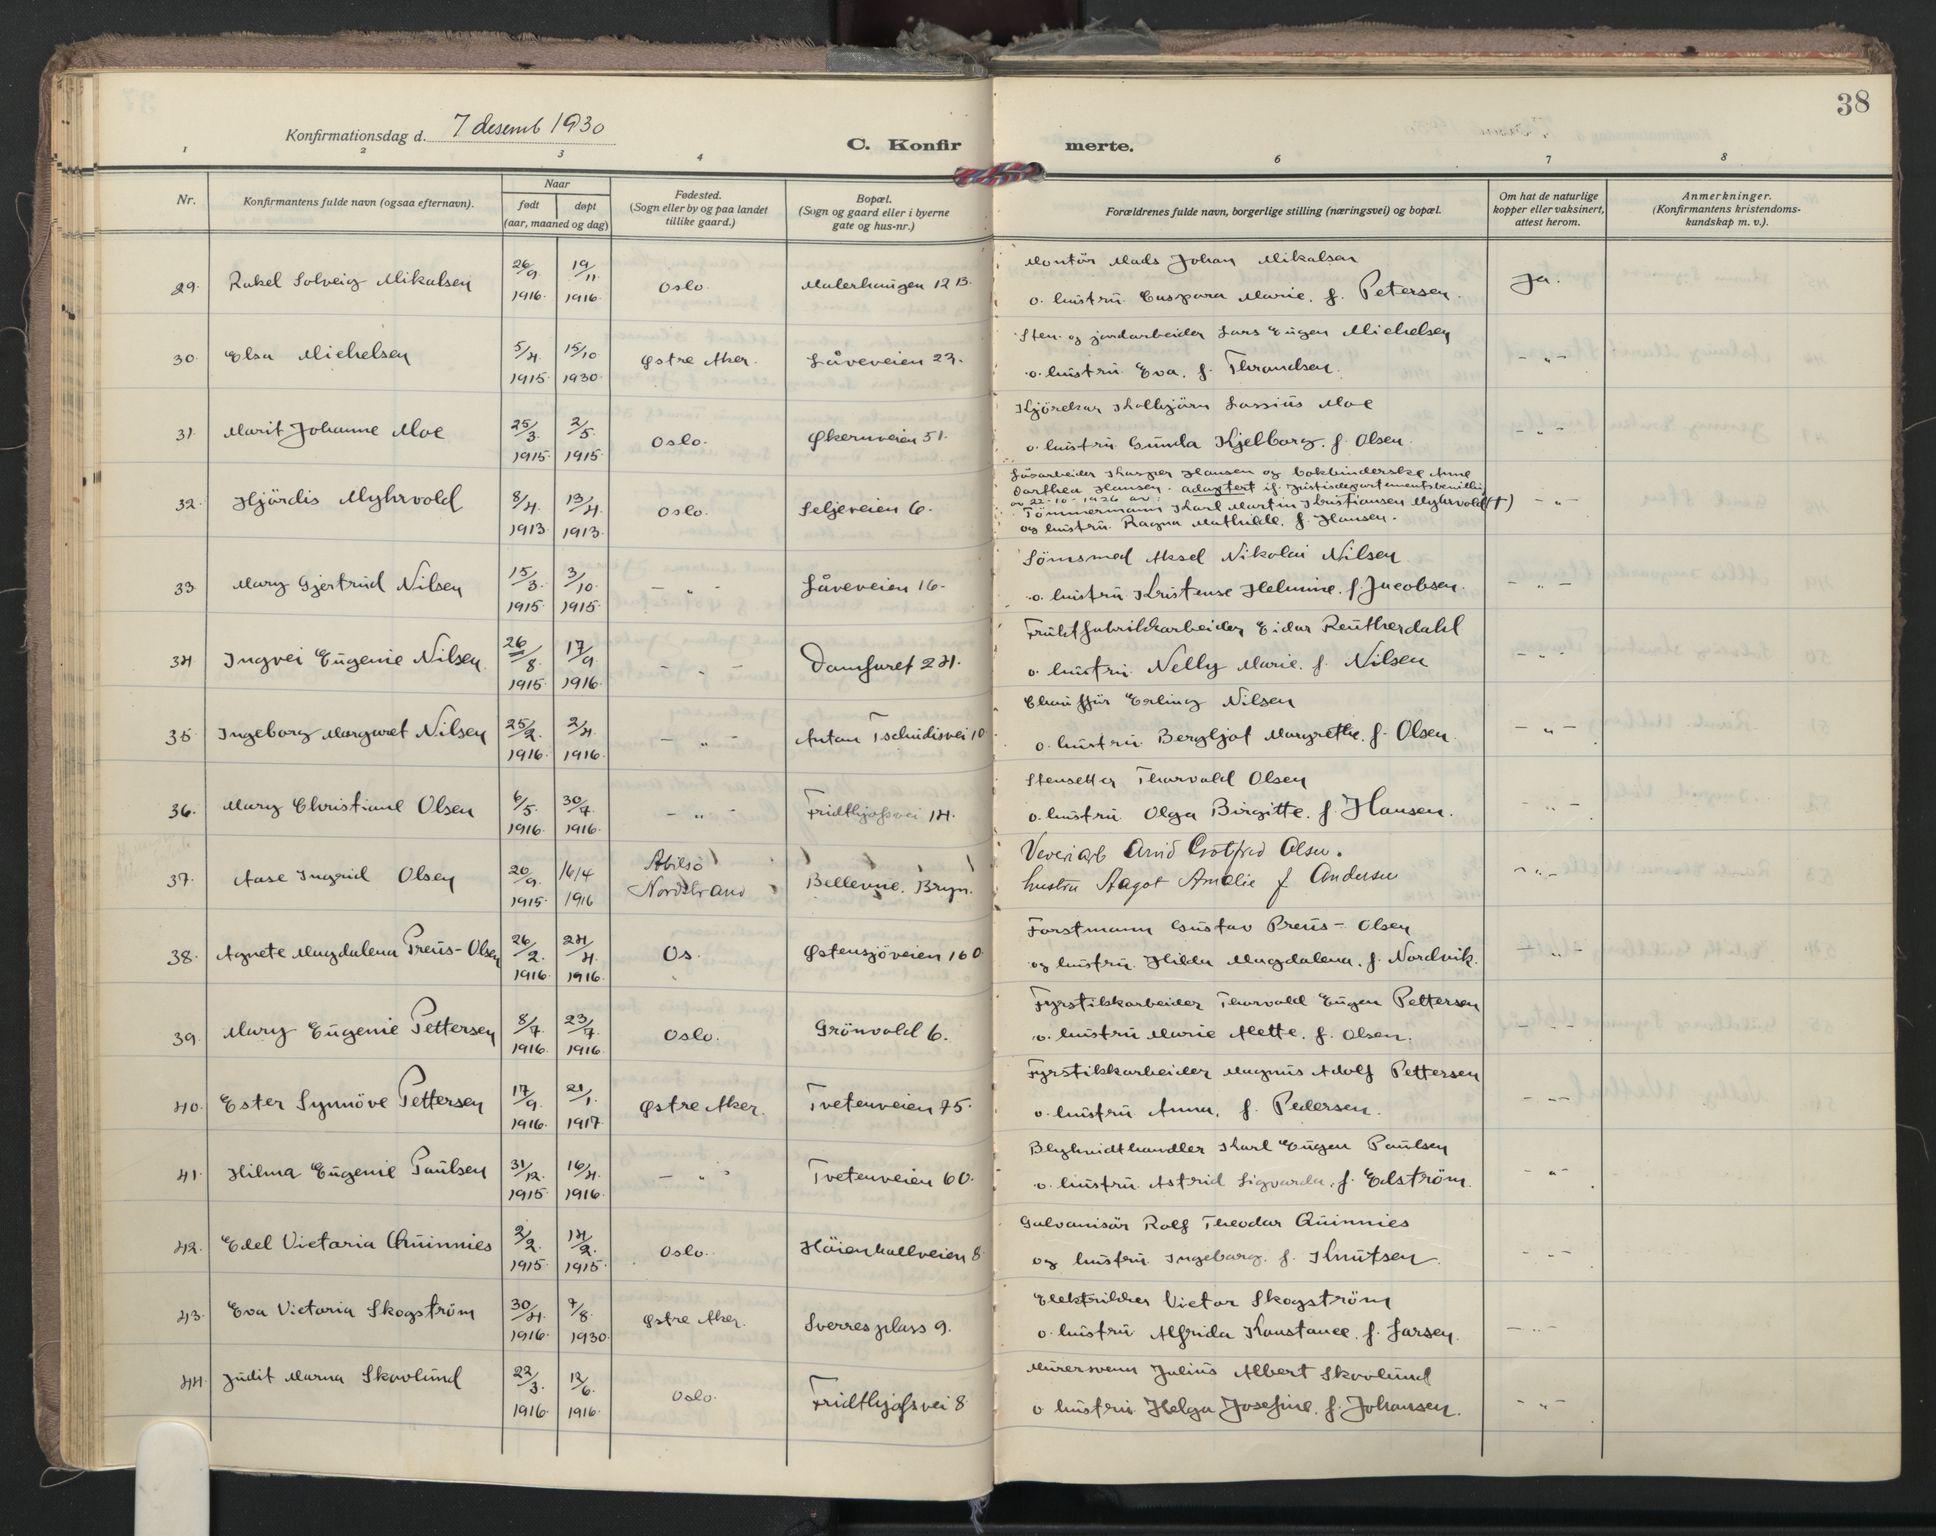 38
Konfirmationsdag d. 7 desemb 1930
C. Konfirmerte.
1 2 3 4 6 7 8
Nr.
Konfirmantens fulde navn (ogsaa efternavn).
Naar
født døpt
(aar, maaned og dag)
Fødested.
(Sogn eller by og paa landet
tillike gaard.)
Bopæl.
(Sogn og gaard eller i byerne
gate og hus-nr.)
Forældrenes fulde navn, borgerlige stilling (næringsvei) og bopæl.
Om hat de naturlige
kopper eller vaksinert,
attest herom.
Anmerkninger.
(Konfirmantens kristendoms-
kundskap m. v.).
29. Rakel Solveig Mikalsen 26/9 1916 19/11 1916 Oslo. Malerhaugen 12 B. Montör Mads Johan Mikalsen
o. hustru Caspara Marie, f. Petersen. Ja.
30. Elsa Michelsen 5/4 1915 15/10 1930 Østre Aker. Låveveien 23. Sten- og jordarbeider Lars Eugen Michelsen
o. hustru Eva, f. Thrandsen. - " -
31. Marit Johanne Moe 25/3 1915 2/5 1915 Oslo. Økernveien 51. Kjörekar Kolbjörn Lassius Moe
o. hustru Gunda Kjelborg, f. Olsen. - " -
32. Hjördis Myhrvold 8/4 1913 13/4 1913 Oslo. Seljeveien 6. Lösarbeider Kasper Hansen og bokbinderske Anne
Dorthea Hansen. adoptert if. justisdepartementsbevilling
av 22-10-1926 av
Tömmermann Karl Martin Kristiansen Myhrvold (†)
og hustru Ragna Mathilde, f. Hansen. - " -
33. Mary Gjertrud Nilsen 15/3 1915 3/10 1915 - " - Låveveien 16. Sömsmed Aksel Nikolai Nilsen
o. hustru Kristense Helmine, f. Jacobsen. - " -
34. Ingvei Eugenie Nilsen 26/8 1915 17/9 1916 - " - Damfaret 24. Fruktfabrikkarbeider Eidar Reutherdahl
o. hustru Nelly Marie, f. Nilsen - " -
35. Ingeborg Margaret Nilsen 25/2 1916 2/4 1916 - " - Anton Tschudisvei 10 Chauffür Erling Nilsen
o. hustru Bergljot Margrethe, f. Olsen. - " -
36. Mary Christiane Olsen 6/5 1916 30/7 1916 - " - Fridthjofsvei 14. Stensetter Thorvald Olsen
o. hustru Olga Birgitte, f. Hansen. - " -
37. Aase Ingrid Olsen 20/9 1915 16/4 1916 Abilsö
Nordstrand Bellevue, Bryn. Veveriarb Arvid Gotfred Olsen.
hustru Aagot Amalie f Andersen - " -
38. Agnete Magdalena Preus-Olsen 26/2 1916 24/4 1916 Os. Østensjöveien 160 Forstmann Gustav Preus-Olsen
og hustru Hilda Magdalena, f. Nordvik. - " -
39. Mary Eugenie Pettersen 8/7 1916 23/7 1916 Oslo. Grönvold 6. Fyrstikkarbeider Thorvald Eugen Pettersen
o. hustru Marie Mette, f. Olsen. - " -
40. Ester Synnöve Pettersen 17/9 1916 21/1 1917 Østre Aker. Tvetenveien 75. Fyrstikkarbeider Magnus Adolf Pettersen
o. hustru Anna, f. Pedersen. - " -
41. Hilma Eugenie Paulsen 31/12 1915 16/4 1916 - " - Tvetenveien 60. Blyhvidthandler Karl Eugen Paulsen
o. hustru Astrid Sigvarda, f. Edström. - " -
42. Edel Victoria Quinnies 2/2 1915 14/2 1915 Oslo. Höienhallveien 8 Galvanisör Rolf Theodor Quinnies
og hustru Ingeborg, f. Knutsen. - " -
43. Eva Victoria Skogström 30/4 1916 7/8 1930 Østre Aker. Sverres plass 9. Elektrikker Victor Skogström
o. hustru Alfrida Konstance, f. Larsen. - " -
44. Judit Marna Skovlund 22/3 1916 12/6 1916 Oslo. Fridthjofsvei 8 Murersvenn Julius Albert Skovlund
o hustru Helga Josefine, f. Johansen. - " -